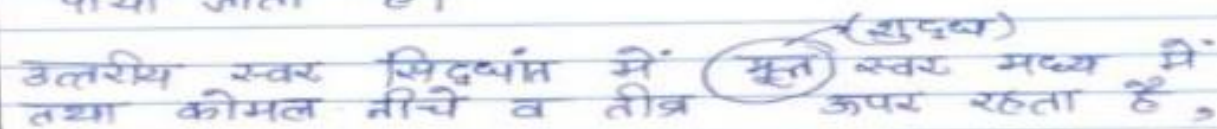 (शुद्ध)
उत्तरीय स्वर सिद्धांत में मूल स्वर मध्य में
तथा कोमल नीचे व तीव्र ऊपर रहता है,